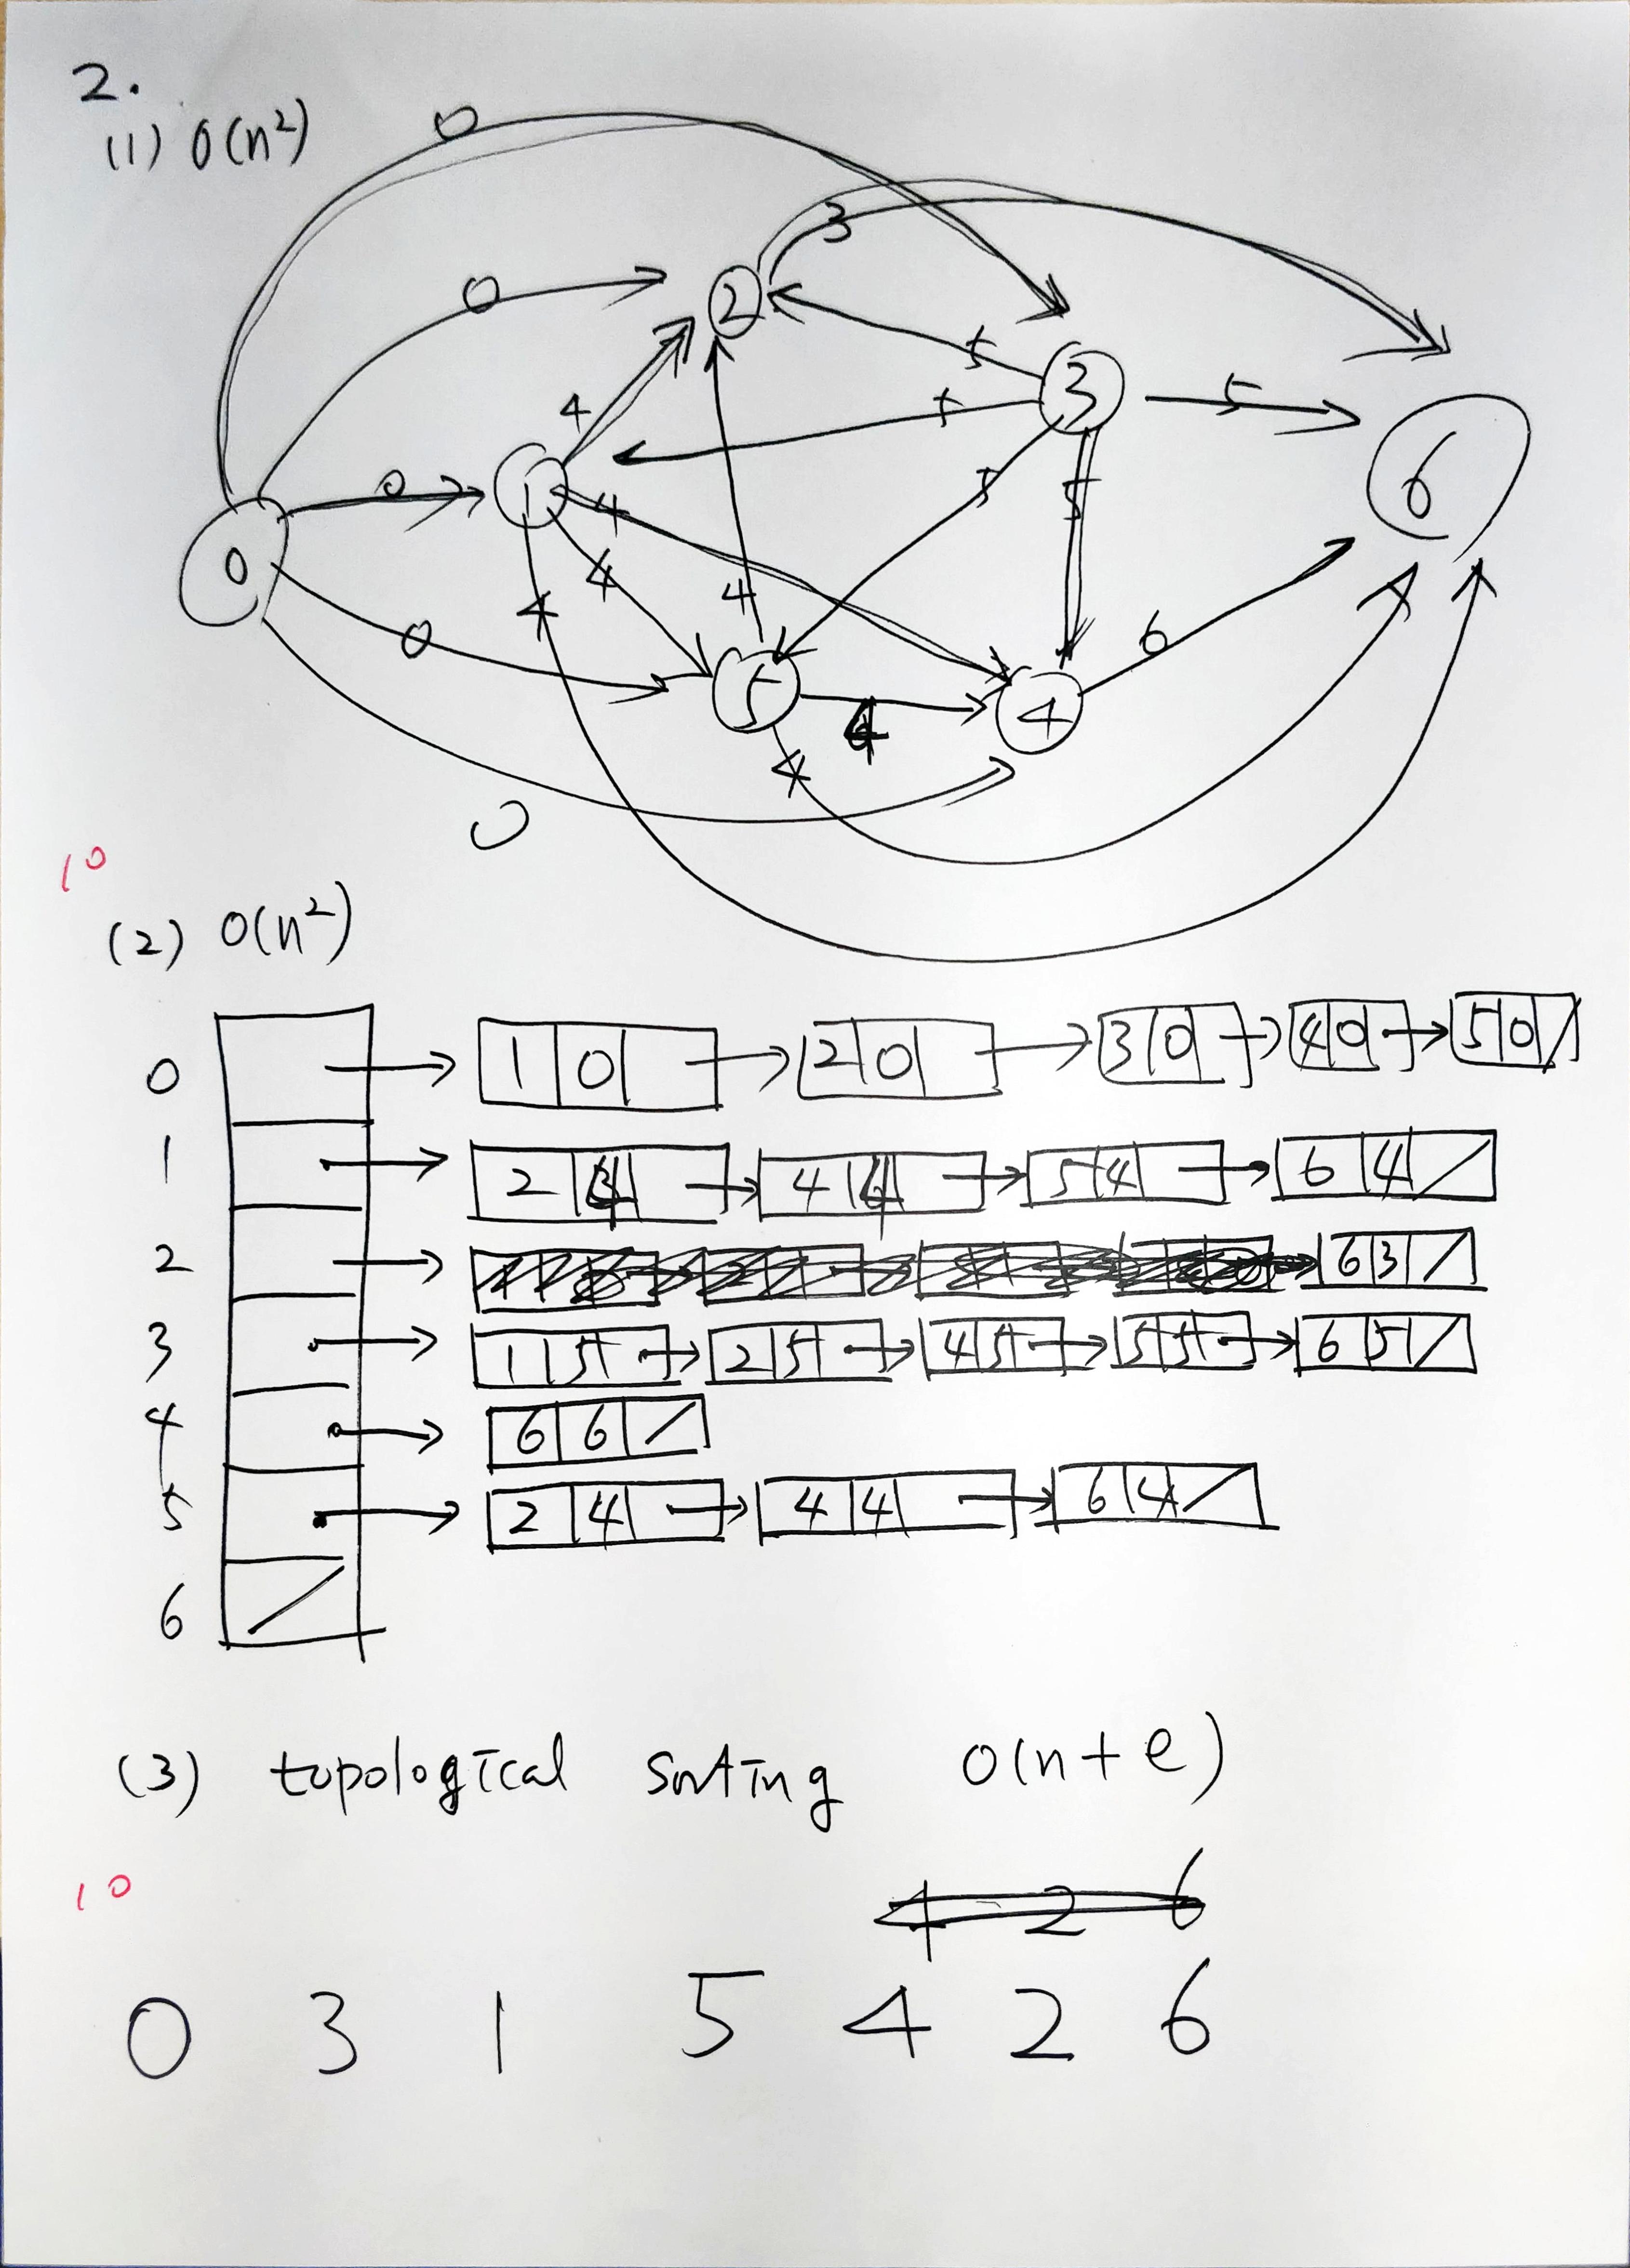 2.
(1) O(n²)
0
3
0
2
5
3
5
5
4
0
1
4
6
5
5
0
4
4
4
0
6
5
4
4
4
0
10
(2) O(n²)
0 1 0 2 0 3 0 4 0 5 0
1 2 4 4 4 5 4 6 4
2 6 3
3 1 5 2 5 4 5 5 5 6 5
4 6 6
5 2 4 4 4 6 4
6
(3) topological sorting O(n+e)
10
4 2 6
0 3 1 5 4 2 6